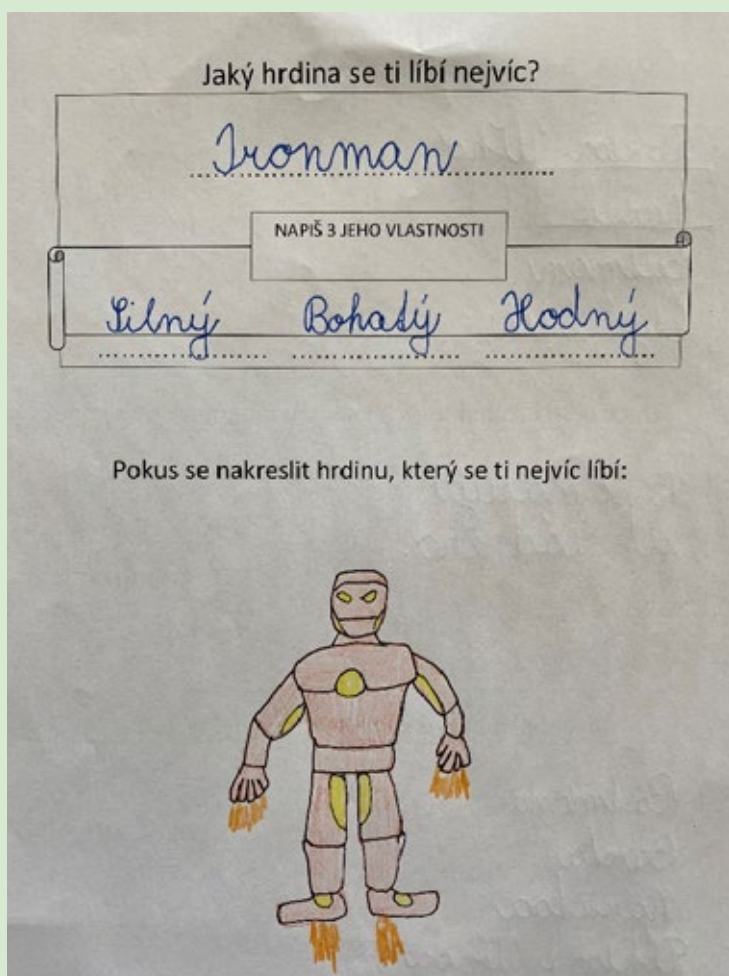 Jaký hrdina se ti líbí nejvíc?
Ironman
NAPIŠ 3 JEHO VLASTNOSTI
Silný Bohatý Hodný
Pokus se nakreslit hrdinu, který se ti nejvíc líbí: